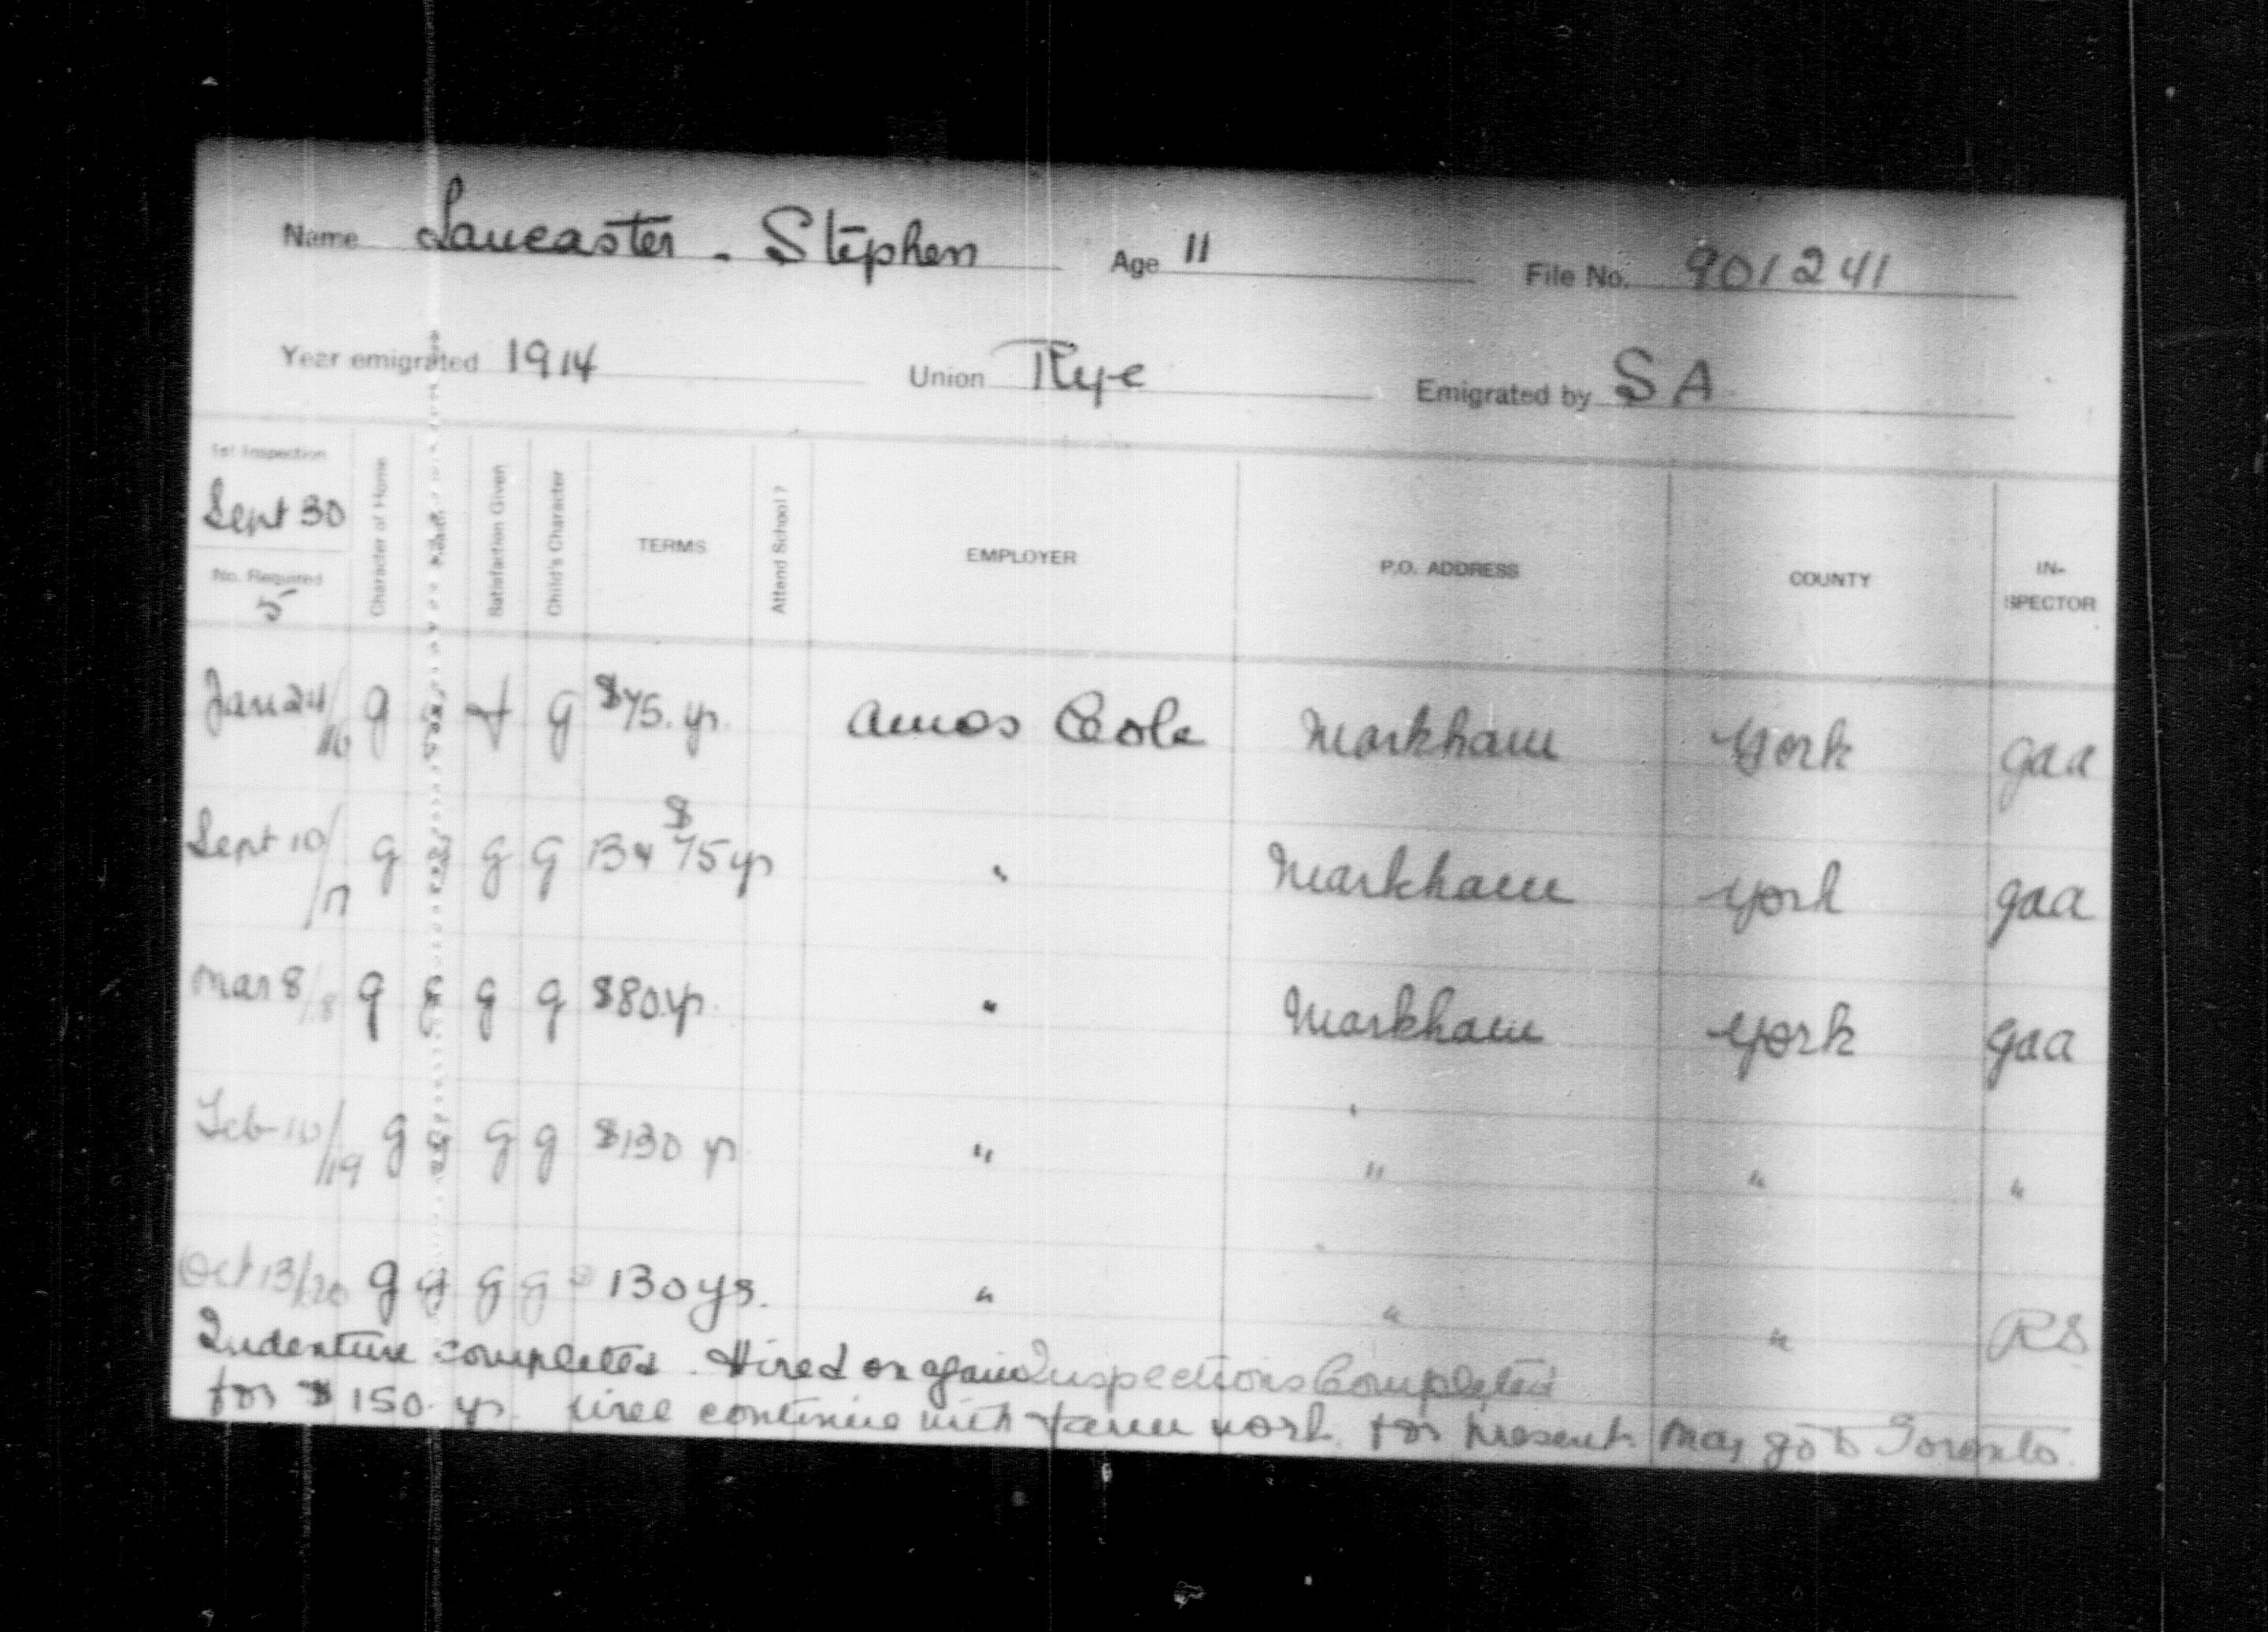 Name Lancaster - Stephen Age 11 File No. 901241
Year emigrated 1914 Union Rye Emigrated by S A
1st Inspection Sept 30 No. Required 5 Character of Home Satisfaction Given Child's Character TERMS Attend School? EMPLOYER P.O. ADDRESS COUNTY IN-SPECTOR
Jan 24/16 g f g $75. yr. Amos Cole Markham York gaa
Sept 10/17 g g g g $75 yr " Markham York gaa
Mar 8/18 g g g g $80 yr. " Markham York gaa
Feb 10/19 g g g g $130 yr " " " "
Oct 13/20 g g g g 130 yr. " " " RS
Indenture completed. Hired on again Inspections Completed
for $150. yr. will continue with farm work for present. May go to Toronto.